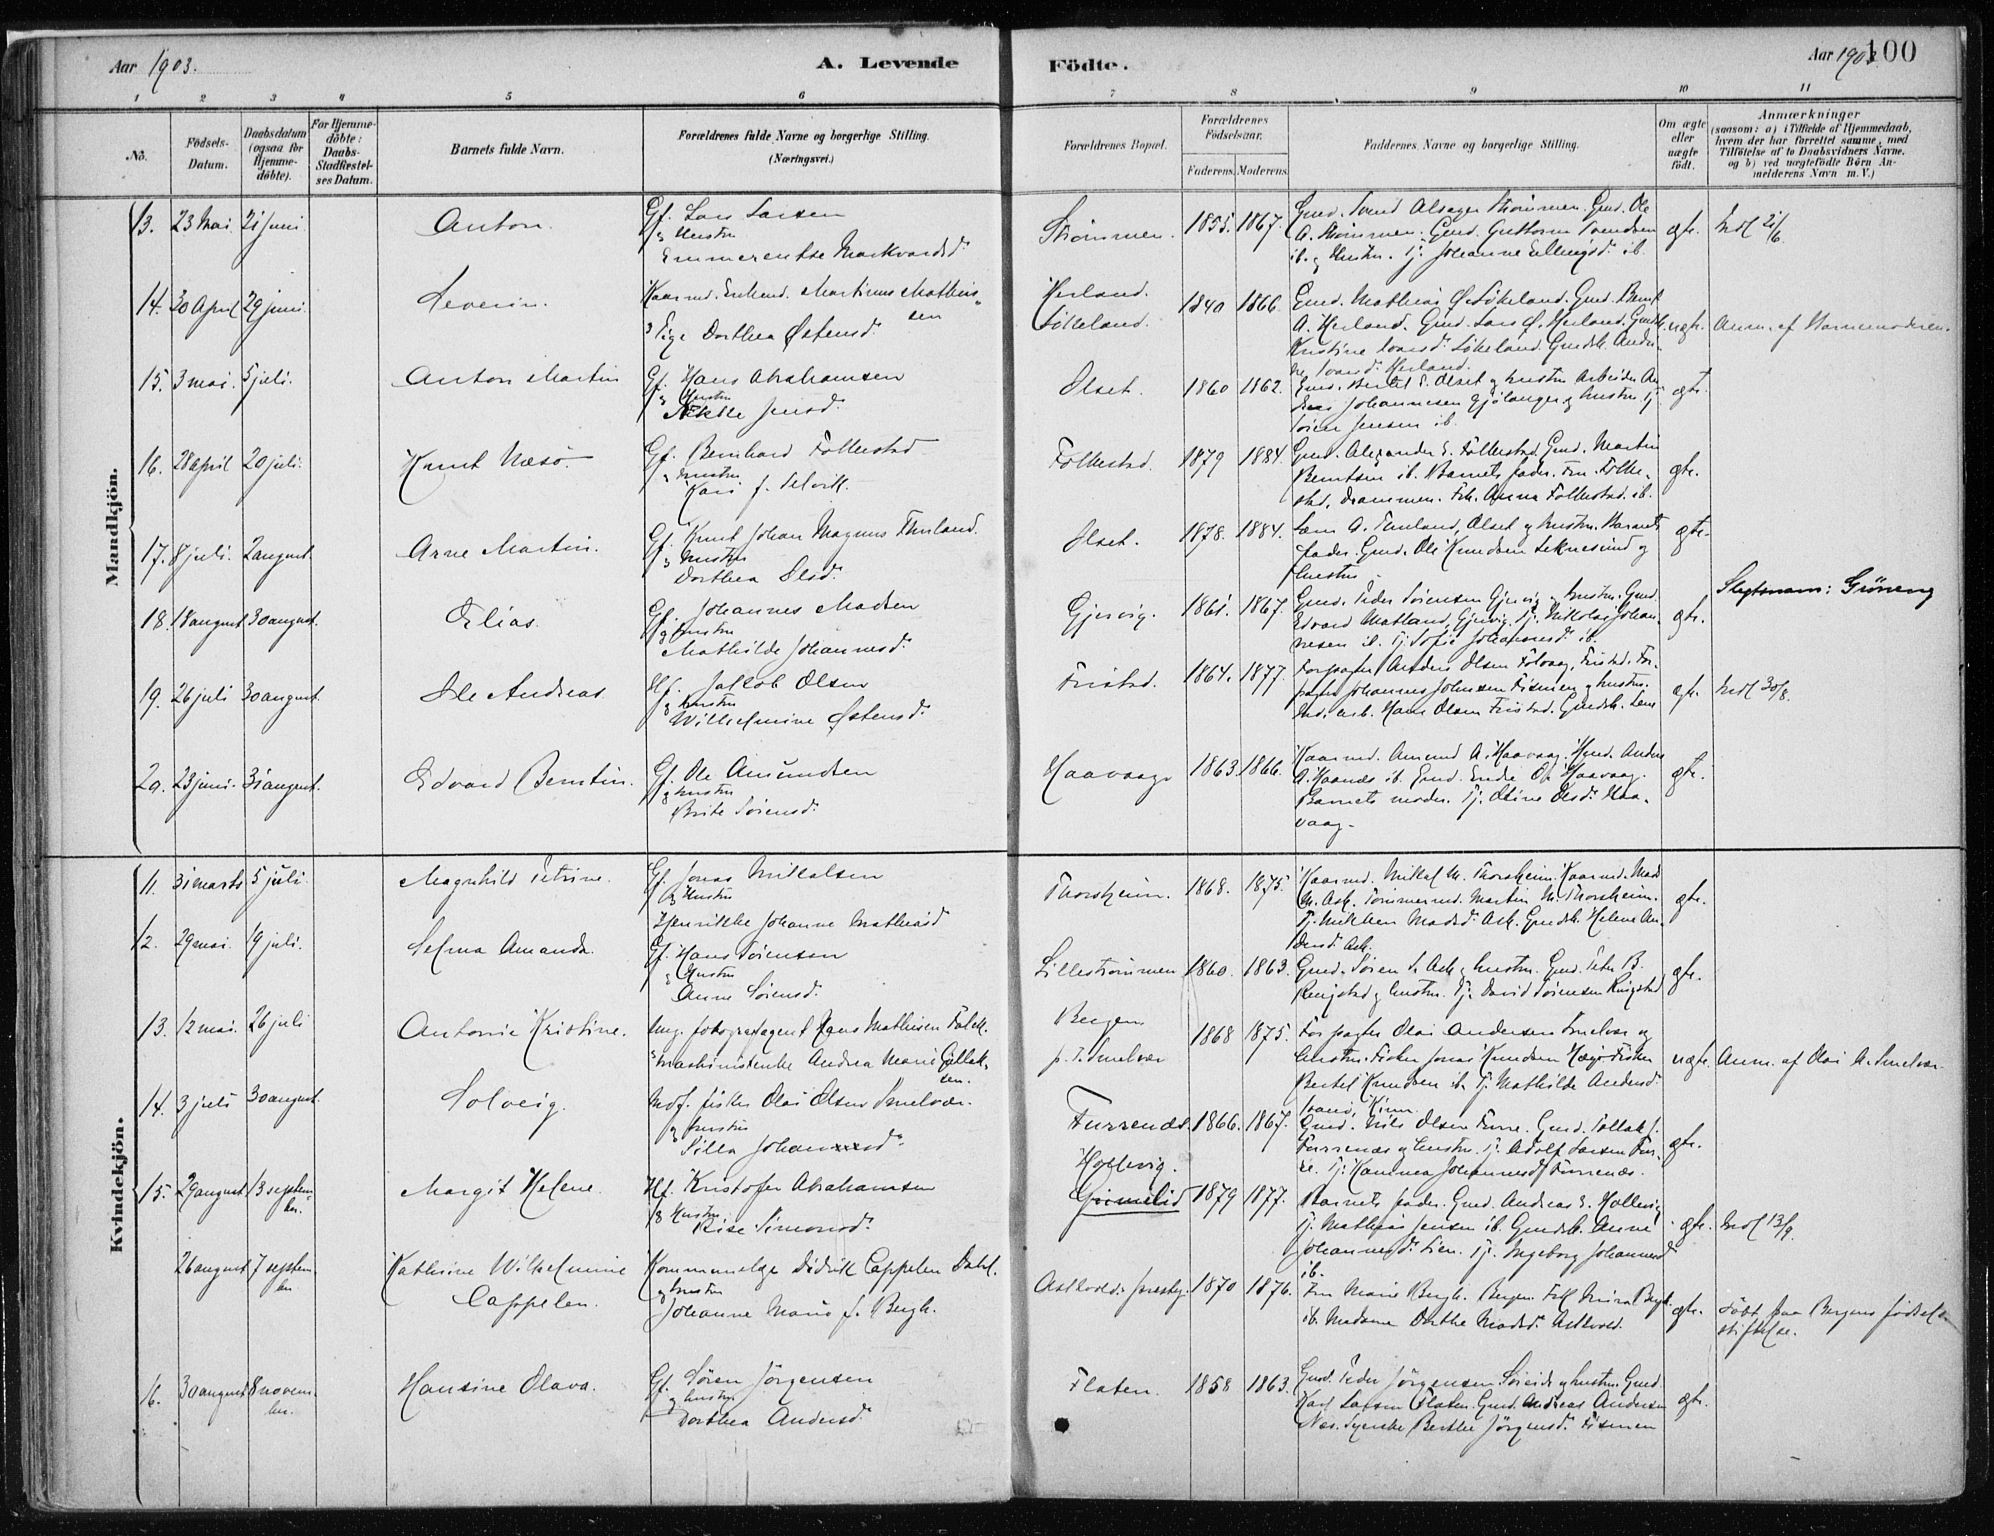 Aar 1903.
A. Levende
Födte.
Aar 1903
100
1 2 3 4 5 6 7 8 9 10 11
No.
Födsels-
Datum.
Daabsdatum
(ogsaa for
Hjemme-
döbte).
For Hjemme-
döbte:
Daabs-
Stadfæstel-
ses Datum.
Barnets fulde Navn.
Forældrenes fulde Navne og borgerlige Stilling.
(Næringsvei.)
Forældrenes Bopæl.
Forældrenes
Födselsaar.
Faderens. Moderens.
Faddernes Navne og borgerlige Stilling.
Om ægte
eller
uægte
födt.
Anmærkninger
(saasom: a) i Tilfælde af Hjemmedaab,
hvem der har forrettet samme, med
Tilföielse af to Daabsvidners Navne,
og b) ved uægtefödte Börn An-
melderens Navn m. V.)
Mandkjön.
13. 23 Mai. 21 juni
Anton.
Gf. Lars Larsen
og Hustru
Emmerentse Markvardsd.
Strømmen. 1855. 1867.
Gmd. Svend Alsager Strømmen. Gmd. Ole
A. Strømmen. Gmd. Guttorm Svendsen
ib. og Hustru. Tj. Johanne Ellingsd. ib.
egte. Indl 21/6.
14. 30 April 29 juni.
Severin.
Kaarmd. Enkemd. Martinus Mathis-
sen
og Pige Dorthea Østensd.
Herland.
Løkeland. 1840 1866.
Gmd. Mathias Ø. Løkeland. Gmd. Bernt
A. Herland. Gmd. Lars Ø. Herland. Gmdsk.
Kristine Ivarsd. Løkeland. Gmdsk. Andri-
ne Ivarsd. Herland.
uegte. Anm. af Barnemoderen.
15. 3 mai. 5 juli.
Anton Martin
Gf. Hans Abrahamsen
og Hustru
Jensd.
Olset. 1860 1862.
Gmd. Bertel E. Olset og hustru Arbeider An-
dreas Johannesen Gjølanger og hustru Tj.
Søren Jensen ib.
egte.
16. 28 april 20 juli.
Knut Næsø.
Gf. Bernhard Folkestad
og hustru
Kari f.
Folkestad. 1879 1884.
Gmd. Alexander E. Folkestad. Gmd. Martin
Berntsen ib. Barnets fader. Fru Folke-
stad, Drammen. Frk. Anna Folkestad. ib.
egte.
17. 8 juli. 2 august.
Arne Martin.
Gf. Knut Johan Magnus Thuland.
og Hustru
Dorthea Olsd.
Olset. 1878. 1884.
A. Thuland, Olset og hustru. Barnets
fader. Gmd. Ole Knudsen Leknesund og
Hustru.
egte.
18. 18 august 30 august.
Elias.
Gf. Johannes Madsen
og hustru
Mathilde Johannesd.
Gjervig. 1861. 1867.
Gmd. Peder Sørensen Gjervig og hustru. Gmd.
Edvard Matland, Gjervig. Tj. Nikolai Johan-
nesen ib. Tj. Sofie Johannesd. ib.
egte.
Slegtsnavn: Grøneng
19. 26 juli 30 august.
Ole Andreas.
Hf. Jakob Olsen
og hustru
Wilhelmine Østensd.
Fristad. 1864. 1877.
Forpagter Anders Olsen, Fristad. For-
pagter Johannes Johnsen Fismen og hustru.
arb. Hans Olsen Fristad. Gmdsk. Lena
egte. Indl 30/8.
20. 23 juni. 31 august.
Edvard Berntin.
Gf. Ole Amundsen
og hustru
Brite Sørensd.
Haavaag. 1863. 1866.
Kaarmd. Amund A. Haavaag. Gmd. Anders
A. Haanes ib. Gmd. Endre O. Haavaag.
Barnets moder. Tj. Oline Olsd. Haa-
vaag.
egte.
Kvindekjön.
11. 31 marts 5 juli.
Magnhild Petrine.
Gf. Jonas Mikalsen
og Hustru
Henrikke Johanne Mathiasd
Thorsheim. 1868. 1875.
Kaarmd. Mikal M. Thorsheim. Kaarmd. Mads
M. Ask. Tømmermd. Martin M. Thorsheim.
Tj. Madsd. Ask. Gmdsk. Helene An-
dersd. Ask.
egte.
12. 29 mai. 19 juli.
Selma Amanda.
Gf. Hans Sørensen
og Hustru
Anne Sørensd.
Lillestrømmen 1860. 1863.
Gmd. Søren S. Ask og hustru. Gmd. Peter B.
Ringstad og hustru. Tj. David Sørensen Ringstad
egte.
13. 12 mai. 26 juli
Antonie Kristine.
Ung. fotografagent Hans Mathisen Falck.
og maskinistenke Andrea Marie Gullak-
sen.
Bergen
p. t. Smelvær 1868 1875.
Forpagter Olai Andersen Smelvær og
hustru. Fisker Jonas Knudsen. Fisker
Bertel Knudsen ib. Tj. Mathilde Andersd.
Kinn.
uegte. Anm. af Olai A. Smelvær.
14. 3 juli 30 august.
Solveig.
Indf. fisker Olai Olsen Smelvær.
og hustru
Silla Johannesd.
Furrenæs. 1866. 1867.
Gmd. Nils Olsen Furre. Gmd. Tollak J.
Furrenæs og hustru. Tj. Adolf Larsen Fur-
re. Tj. Hanna Johannesd. Furrenæs.
egte.
15. 29 august 13 septem-
ber.
Margit Helene.
Hf. Kristofer Abrahamsen
og Hustru
Simonsd.
Hollevig.
Grimelid 1879 1877.
Barnets fader. Gmd. Andreas E. Hollevig
Tj. Mathias Jensen ib. Gmdsk. Anne
Johannesd. Lien. Tj. Ingeborg Johannesd
ib.
egte. Indl 13/9.
26 august 7 septem-
ber
Kathrine Wilhelmine
Cappelen.
Kommunelæge Didrik Cappelen Dahl.
og hustru
Johanne Marie f. Bergh.
Askvold. præstg. 1870 1876.
Fru Marie Bergh. Bergen. Frk. Bergh.
ib. Madame Dorthe Madsd. Askvold.
egte. Født paa Bergens fødsels-
stiftelse.
16. 30 august 8 novem-
ber.
Hansine Olava.
Gf. Søren Jörgensen
og hustru
Dorthea Andersd.
Flaten. 1858 1863.
Gmd. Peder Jørgensen Søreide og hustru. Gmd.
Karl Larsen Flaten. Gmd. Andreas Andersen
Næs. Syerske Berthe Jørgensd. Fismen
egte.